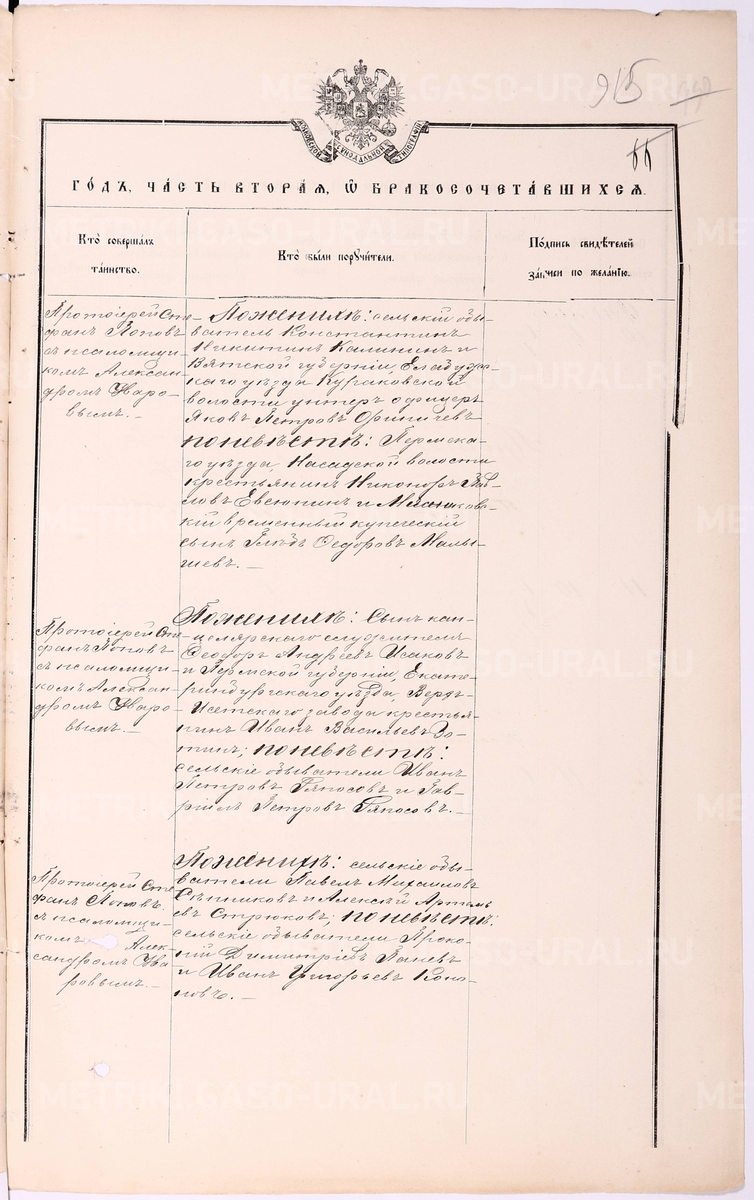 915
66
МОСКОВСКОЙ СѴНОДАЛЬНОЙ ТИПОГРАФІИ
ГОДЪ, ЧАСТЬ ВТОРАЯ, Ѿ БРАКОСОЧЕТАВШИХСЯ.
Кто совершалъ
таинство.
Кто были поручители.
Подпись свидѣтелей
записи по желанію.
Протоіерей Сте-
фанъ Поповъ
съ псаломщи-
комъ Алексан-
дромъ Уваро-
вымъ. —
По женихѣ: сельскій обы-
ватель Константинъ
Никитинъ Калининъ и
Вятской губерніи, Елабуж-
скаго уѣзда Кураковской
волости унтеръ офицеръ
Яковъ Петровъ
по невѣстѣ: Пермска-
го уѣзда, Насадской волости
крестьянинъ Никоноръ Пав-
ловъ Евсюнинъ и
временный купеческій
сынъ Глѣбъ Ѳедоровъ Малы-
шевъ. —
Протоіерей Сте-
фанъ Поповъ
съ псаломщи-
комъ Алексан-
дромъ Уваро-
вымъ. —
По женихѣ: сынъ кан-
целярскаго служителя
Ѳеодоръ Андреевъ Исаковъ
и Пермской губерніи, Екате-
ринбургскаго уѣзда, Верхъ-
Исетскаго завода крестья-
нинъ Иванъ Васильевъ Зо-
тинъ; по невѣстѣ:
сельскіе обыватели Иванъ
Петровъ Ряпосовъ и Гав-
ріилъ Петровъ Ряпосовъ. —
Протоіерей Сте-
фанъ Поповъ
съ псаломщи-
комъ Алек-
сандромъ Ува-
ровымъ. —
По женихѣ: сельскіе обы-
ватели Павелъ Михаиловъ
Сѣнниковъ и Алексѣй Артемь-
евъ Стрюковъ; по невѣстѣ:
сельскіе обыватели Проко-
пій Димитріевъ Паневъ
и Иванъ Григорьевъ Коно-
новъ. —
METRIKI.GASO-URAL.RU